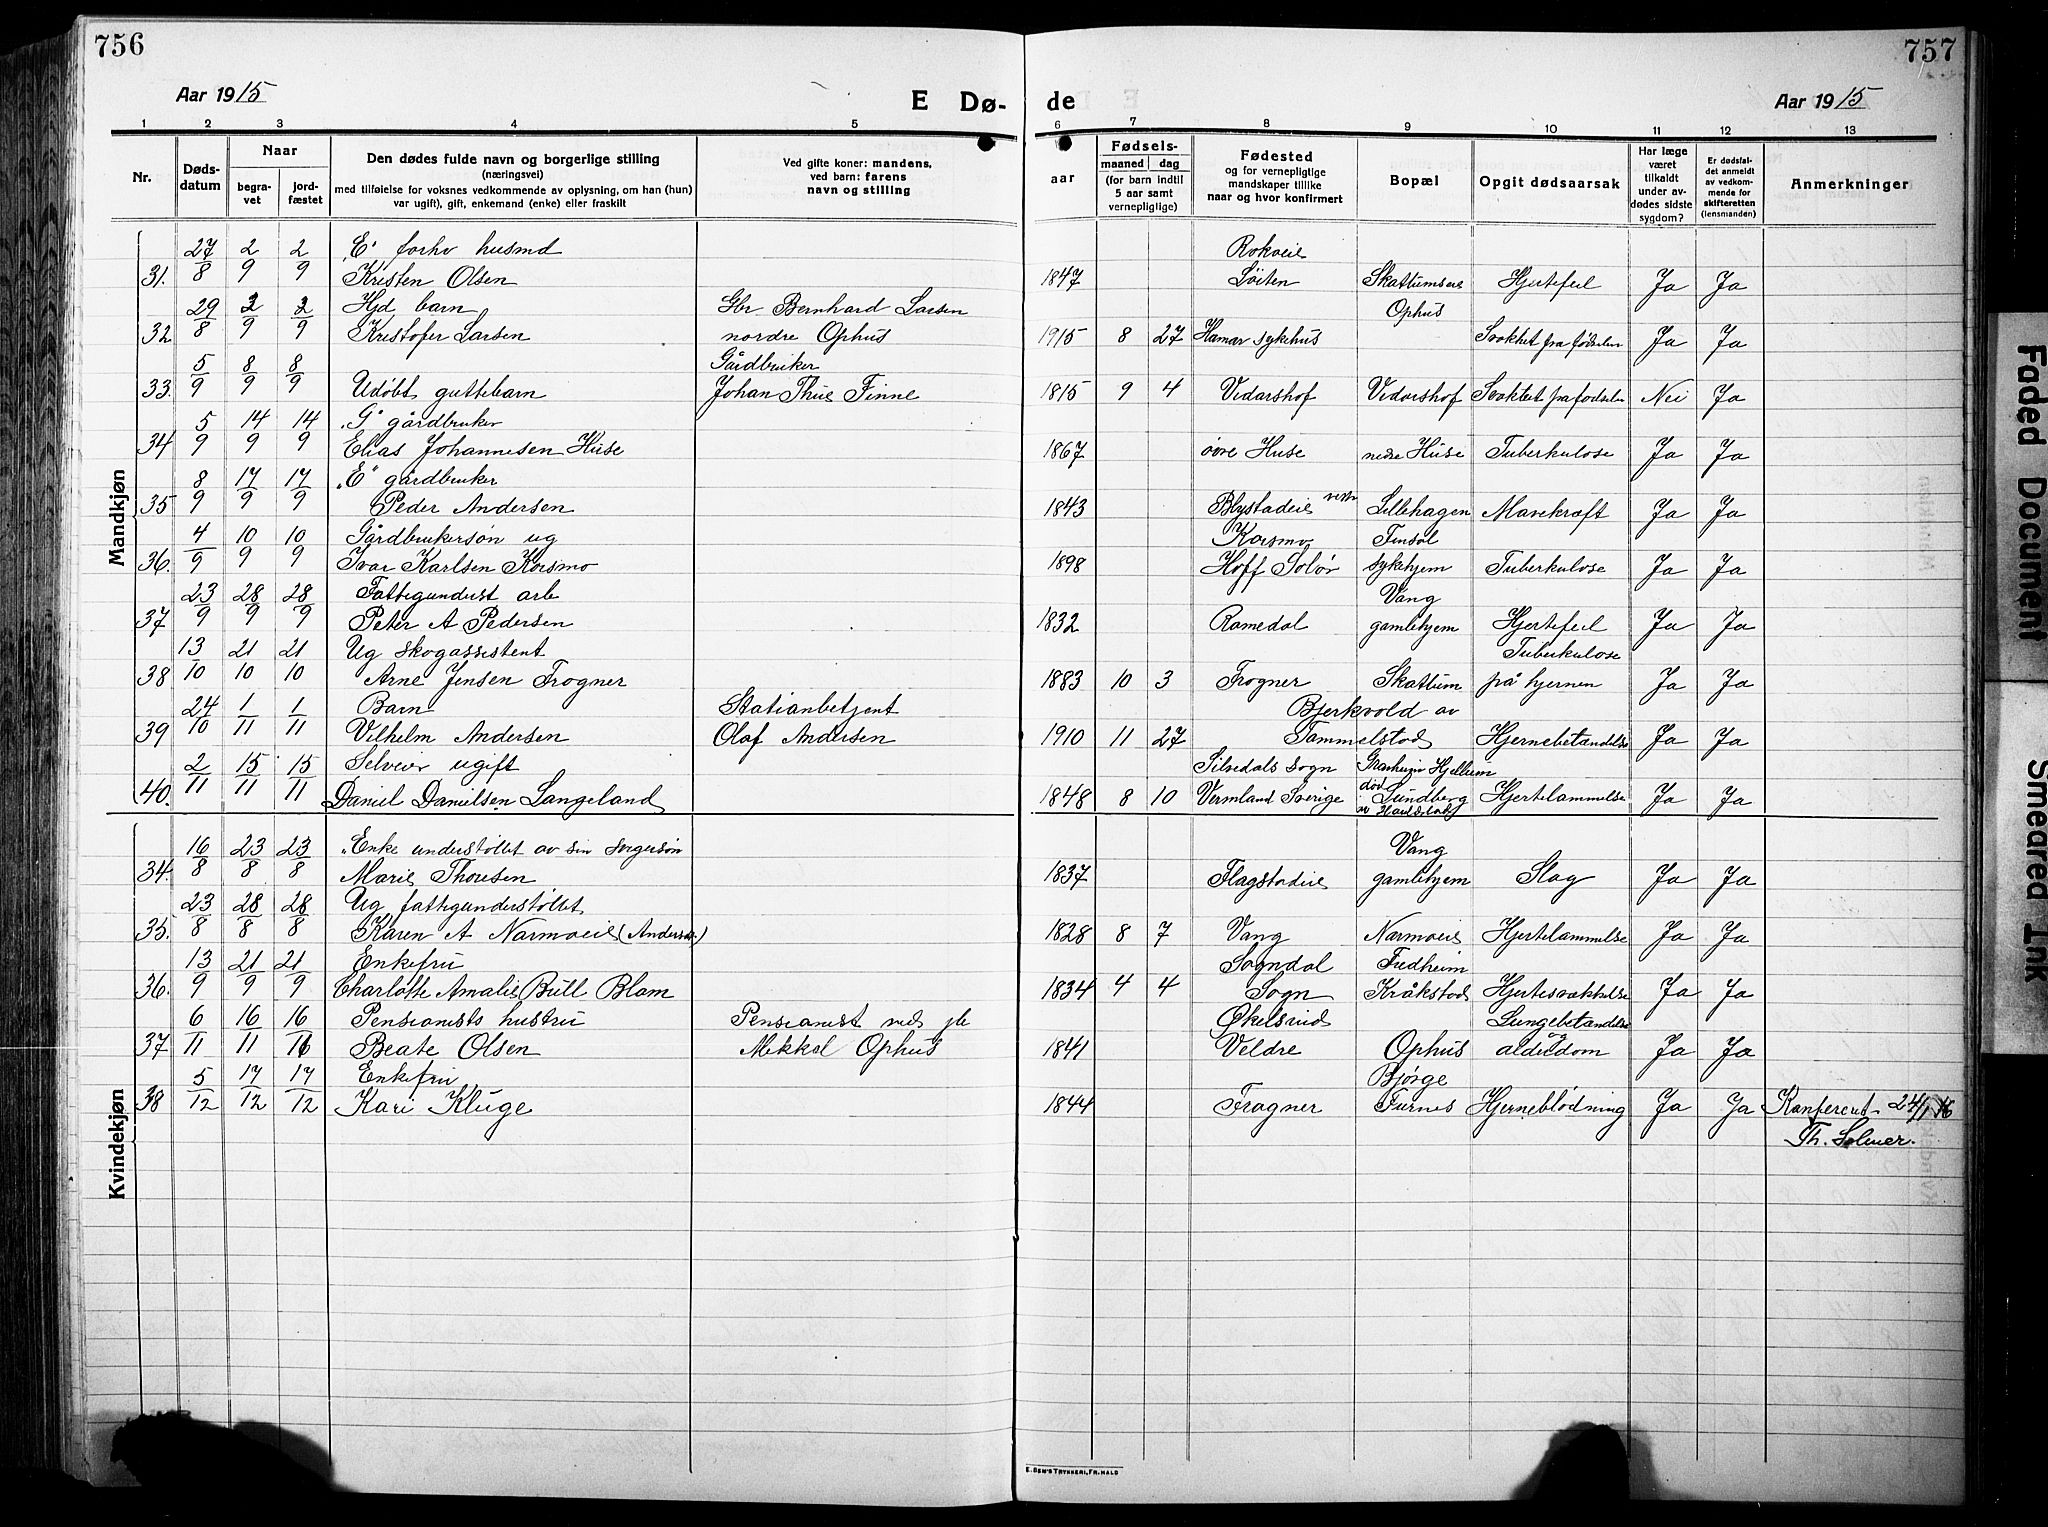 756
Aar 1915
E Dø-
1 2 3 4 5
Nr. Dødsdatum Naar begravet jordfæstet
Den dødes fulde navn og borgerlige stilling
(næringsvei)
med tilføielse for voksnes vedkommende av oplysning, om han (hun)
var ugift), gift, enkemand (enke) eller fraskilt
Ved gifte koner: mandens,
ved barn: farens
navn og stilling
Mandkjøn
27/8 2/9 2/9 "E" forhv husmd
31. Kristen Olsen
29/8 2/9 2/9 Hjd barn Gbr Bernhard Larsen
32 Kristofer Larsen nordre Ophus
5/9 8/9 8/9 Gårdbruker
33. Udøbt guttebarn Johan Thue Finne
5/9 14/9 14/9 "G" gårdbruker
34 Elias Johannesen Huse
8/9 17/9 17/9 "E" gårdbruker
35 Peder Andersen
4/9 10/9 10/9 Gårdbrukersøn ug
36. Ivar Karlsen Korsmo
23/9 28/9 28/9 Fattigunderst arb
37 Peter A Pedersen
13/10 21/10 21/10 Ug skogassistent
38 Arne Jensen Frogner
24/10 1/11 1/11 Barn Stationbetjent
39 Vilhelm Andersen Olaf Andersen
2/11 15/11 15/11 Selveier ugift
40. Daniel Danielsen Langeland
Kvindekjøn
16/8 23/8 23/8 "Enke understøttet av sin svigersøn
34. Marie Thoresen
23/8 28/8 28/8 Ug fattigunderstøttet
35. Karen A Narmoeie (Anders.)
13/9 21/9 21/9 Enkefru
36. Charlotte Amalie Bull Blom
6/11 16/11 16/11 Pensionists hustru Pensionist ved jb
37 Beate Olsen Mikkel Ophus
5/12 17/12 17/12 Enkefru
38 Kari Kluge
757
de
Aar 1915
6 7 8 9 10 11 12 13
Fødsels-
aar maaned dag
(for barn indtil
5 aar samt
vernepligtige)
Fødested
og for vernepligtige
mandskaper tillike
naar og hvor konfirmert
Bopæl
Opgit dødsaarsak
Har læge
været
tilkaldt
under avdødes sidste
sygdom?
Er dødsfaldet anmeldt
av vedkommende for
skifteretten
(lensmanden)
Anmerkninger
Rokoeie
1847 Løiten Skattumseie Hjertefeil Ja Ja
Ophus
1915 8 27 Hamar sykehus Svakhet fra fødselen Ja Ja
1815 9 4 Vidarshof Vidarshof Svakhet fra fødselen Nei Ja
1867 øvre Huse nedre Huse Tuberkulose Ja Ja
1843 Blystadeie vestre Lillehagen Mavekræft Ja Ja
Korsmo Finsal
1898 Hoff Solør sykehjem Tuberkulose Ja Ja
Vang
1832 Romedal gamlehjem Hjertefeil Ja Ja
Tuberkulose
1883 10 3 Frogner Skattum på hjernen Ja Ja
Bjerkvold av
1910 11 27 Tommelstad Hjernebetændelse Ja Ja
Silvedals sogn Hjellum
1848 8 10 Vermland Sverige død Lundberg Hjertelammelse Ja Ja
Vang
1837 Flagstadeie gamlehjem Slag Ja Ja
1828 8 7 Vang Narmoeie Hjertelammelse Ja Ja
Sogndal Fredheim
1834 4 4 Sogn Kråkstad Hjertesvækkelse Ja Ja
Økelsrud Lungebetændelse
1841 Veldre Ophus og alderdom Ja Ja
Bjørge
1844 Frogner Furnes Hjerneblødning Ja Ja Konferert 24/1 16
Th. Solmer.
E. SEM'S TRYKKERI, FR.HALD
Faded Document
Smeared Ink